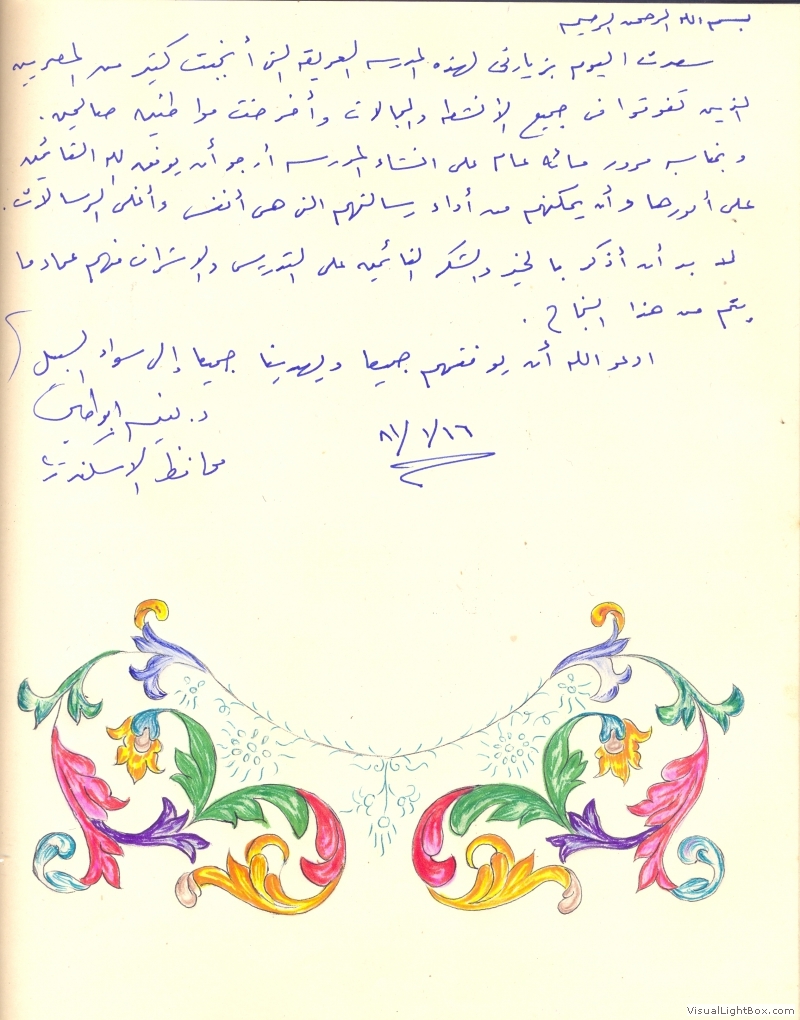 بسم الله الرحمن الرحيم
سعدت اليوم بزيارتى لهذه المدرسه العريقه التى أنجبت كثير من المصريين
الذين تفوقوا فى جميع الأنشطه والمجالات وأفرخت مواطنين صالحين.
وبمناسبه مرور مائه عام على انشاء المدرسه أرجو أن يوفق الله القائمين
على أمورها وأن يمكنهم من أداء رسالتهم التى هى أنفس وأغلى الرسالات.
لا بد أن أذكر بالخير والشكر القائمين على التدريس والإشراف فهم عماد ما
يتم من هذا النجاح.
ادعو الله أن يوفقهم جميعا ويهدينا جميعا إلى سواء السبيل
د. نعيم ابوطالب
محافظ الاسكندرية
٨١/١/١٦
VisualLightBox.com